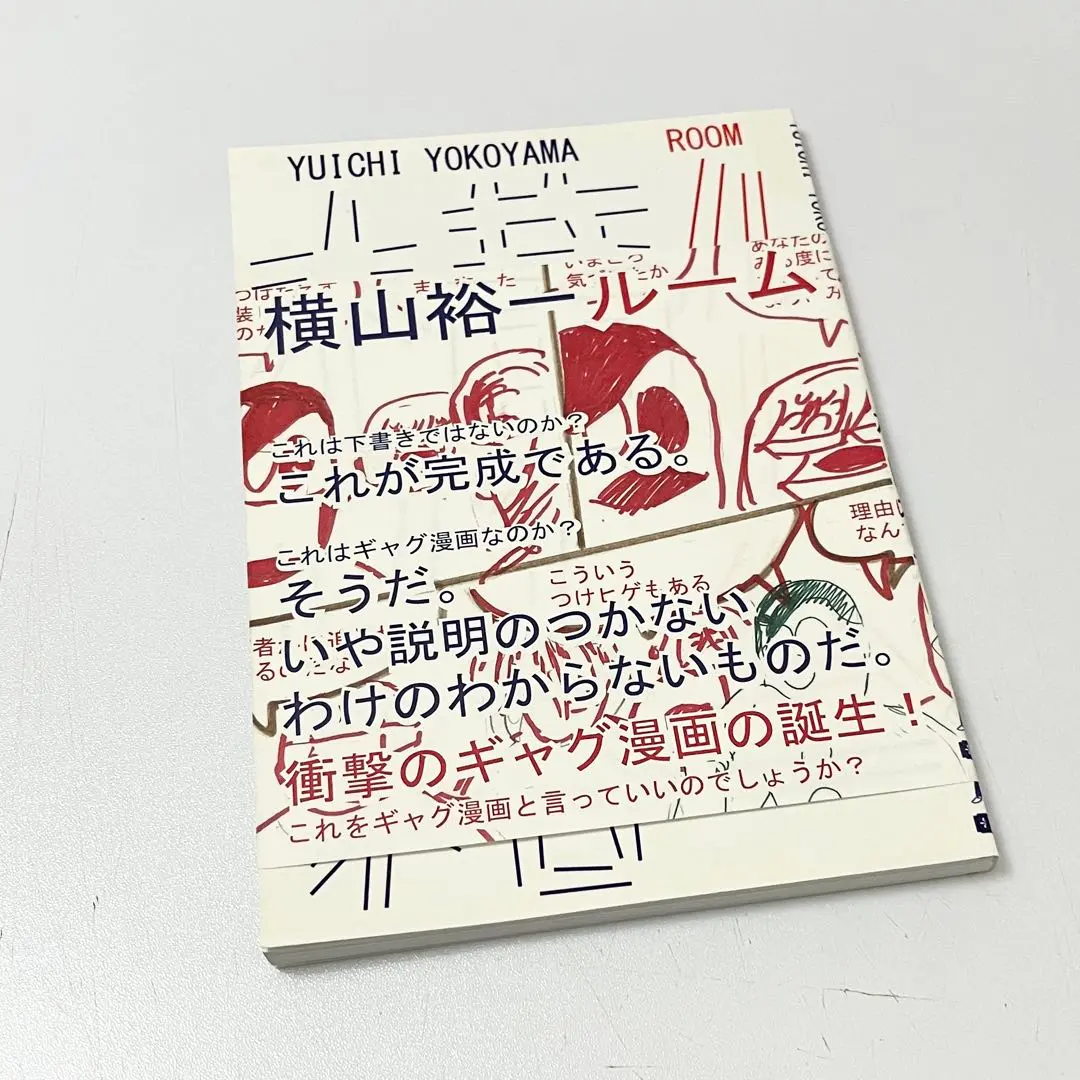 YUICHI YOKOYAMA ROOM
横山裕一ルーム
これは下書きではないのか？
これが完成である。
これはギャグ漫画なのか？
そうだ。
いや説明のつかない
わけのわからないものだ。
衝撃のギャグ漫画の誕生！
これをギャグ漫画と言っていいのでしょうか？
あなたの
理由
なん
こういう
つけヒゲもある